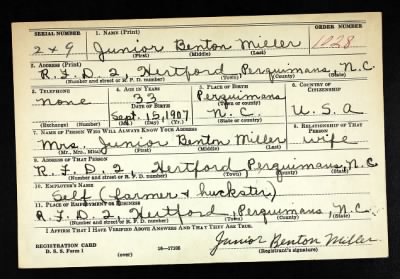 SERIAL NUMBER 1. NAME (Print) ORDER NUMBER
249 Junior Benton Miller 1028
(First) (Middle) (Last)
2. ADDRESS (Print)
R.F.D. 2, Hertford, Perquimans, N.C.
(Number and street or R. F. D. number) (Town) (County) (State)
3. TELEPHONE 4. AGE IN YEARS 5. PLACE OF BIRTH 6. COUNTRY OF CITIZENSHIP
none 33 Perquimans
DATE OF BIRTH (Town or county)
Sept. 15, 1907 N.C. U.S.A
(Exchange) (Number) (Mo.) (Day) (Yr.) (State or country)
7. NAME OF PERSON WHO WILL ALWAYS KNOW YOUR ADDRESS 8. RELATIONSHIP OF THAT PERSON
Mrs. Junior Benton Miller wife
(Mr., Mrs., Miss) (First) (Middle) (Last)
9. ADDRESS OF THAT PERSON
R.F.D. 2, Hertford, Perquimans, N.C.
(Number and street or R. F. D. number) (Town) (County) (State)
10. EMPLOYER'S NAME
Self (farmer & huckster)
11. PLACE OF EMPLOYMENT OR BUSINESS
R.F.D. 2, Hertford, Perquimans, N.C.
(Number and street or R. F. D. number) (Town) (County) (State)
I AFFIRM THAT I HAVE VERIFIED ABOVE ANSWERS AND THAT THEY ARE TRUE.
REGISTRATION CARD
D. S. S. Form 1 (over) 16—17105 Junior Benton Miller
(Registrant's signature)